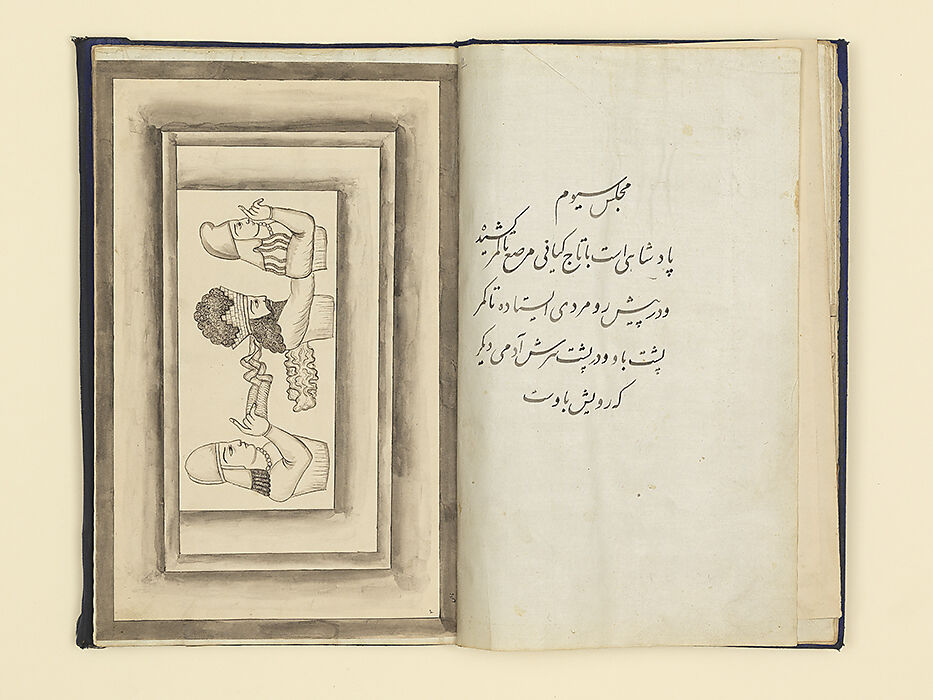 مجلس سیوم
پادشاهی است با تاج کیانی مرصع تا کمر کشیده
و در پیش رو مردی ایستاده تا کمر
پشت باو و در پشت سرش آدمی دیگر
که رویش باوست